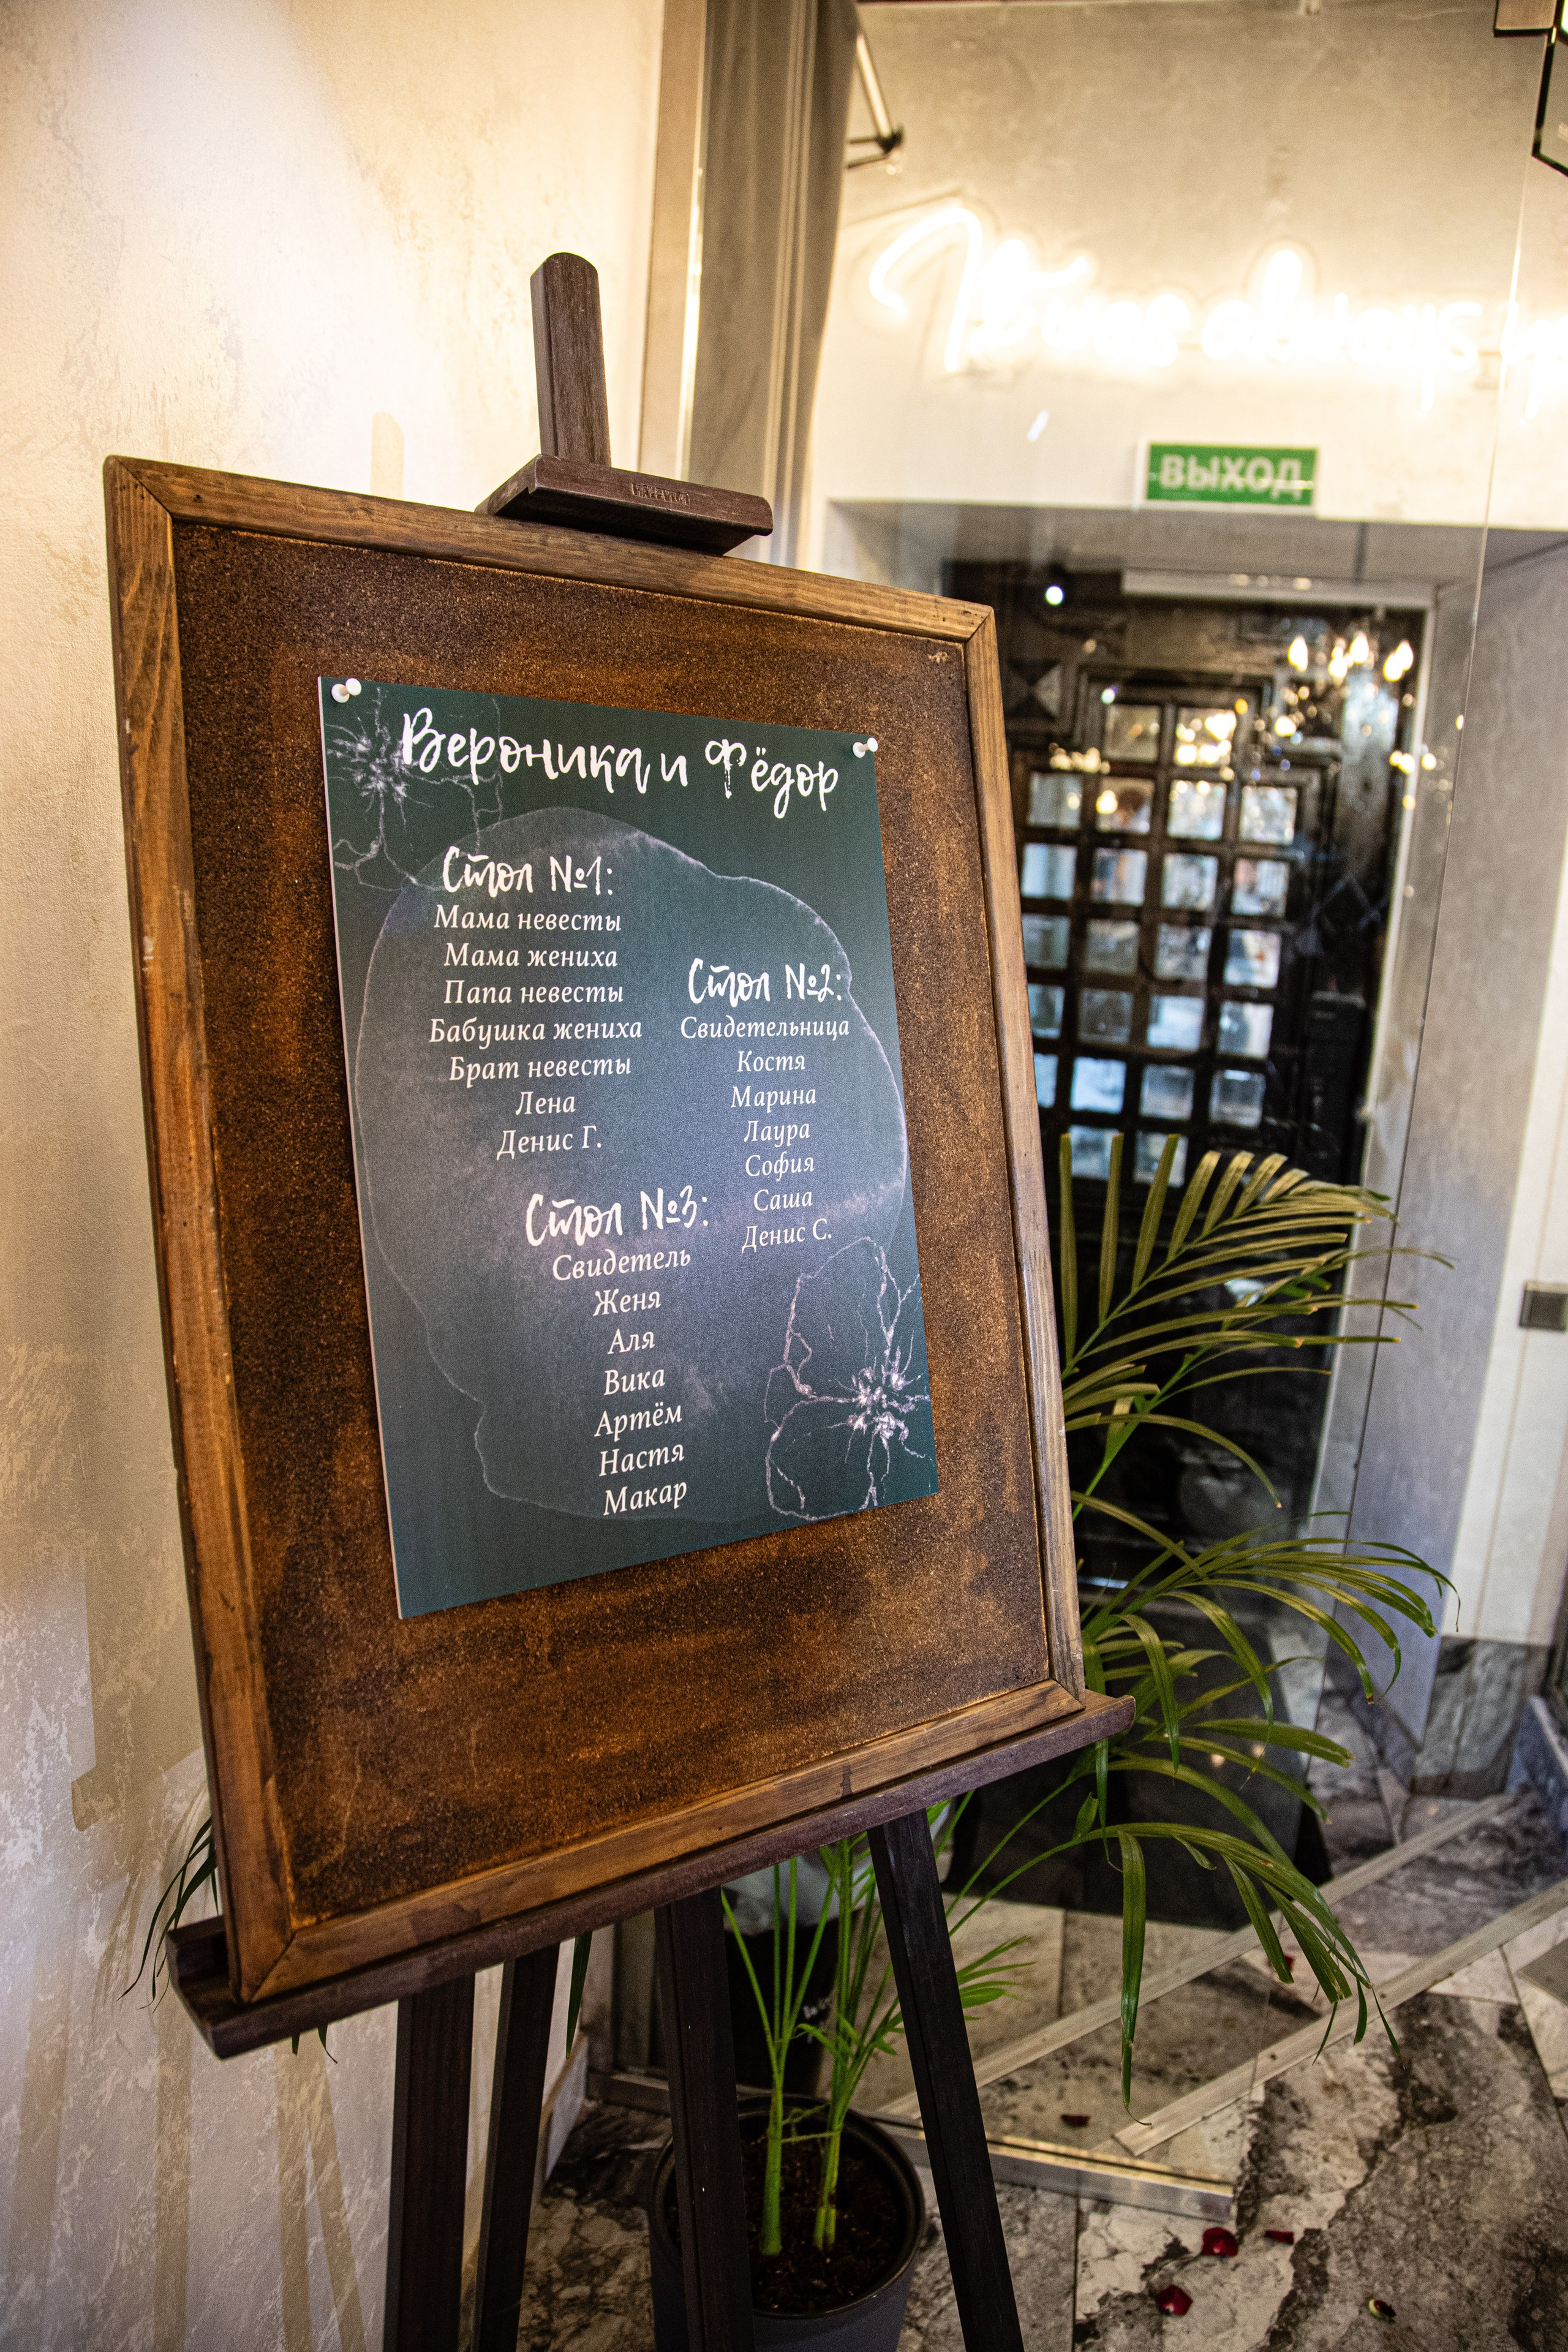 It was always
ВЫХОД
Вероника и Фёдор
Стол №1:
Мама невесты
Мама жениха
Папа невесты
Бабушка жениха
Брат невесты
Лена
Денис Г.
Стол №2:
Свидетельница
Костя
Марина
Лаура
София
Саша
Денис С.
Стол №3:
Свидетель
Женя
Аля
Вика
Артём
Настя
Макар